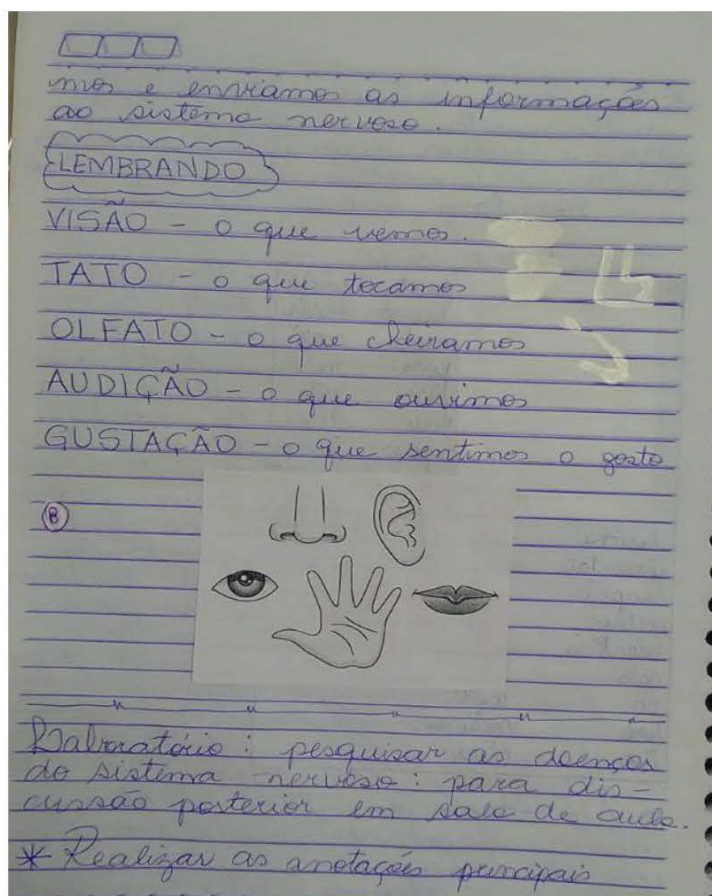 mos e enviamos as informações
ao sistema nervoso.
LEMBRANDO
VISÃO - o que vemos.
TATO - o que tocamos
OLFATO - o que cheiramos
AUDIÇÃO - o que ouvimos
GUSTAÇÃO - o que sentimos o gosto
B
Laboratório: pesquisar as doenças
do sistema nervoso: para dis-
cussão posterior em sala de aula.
* Realizar as anotações principais